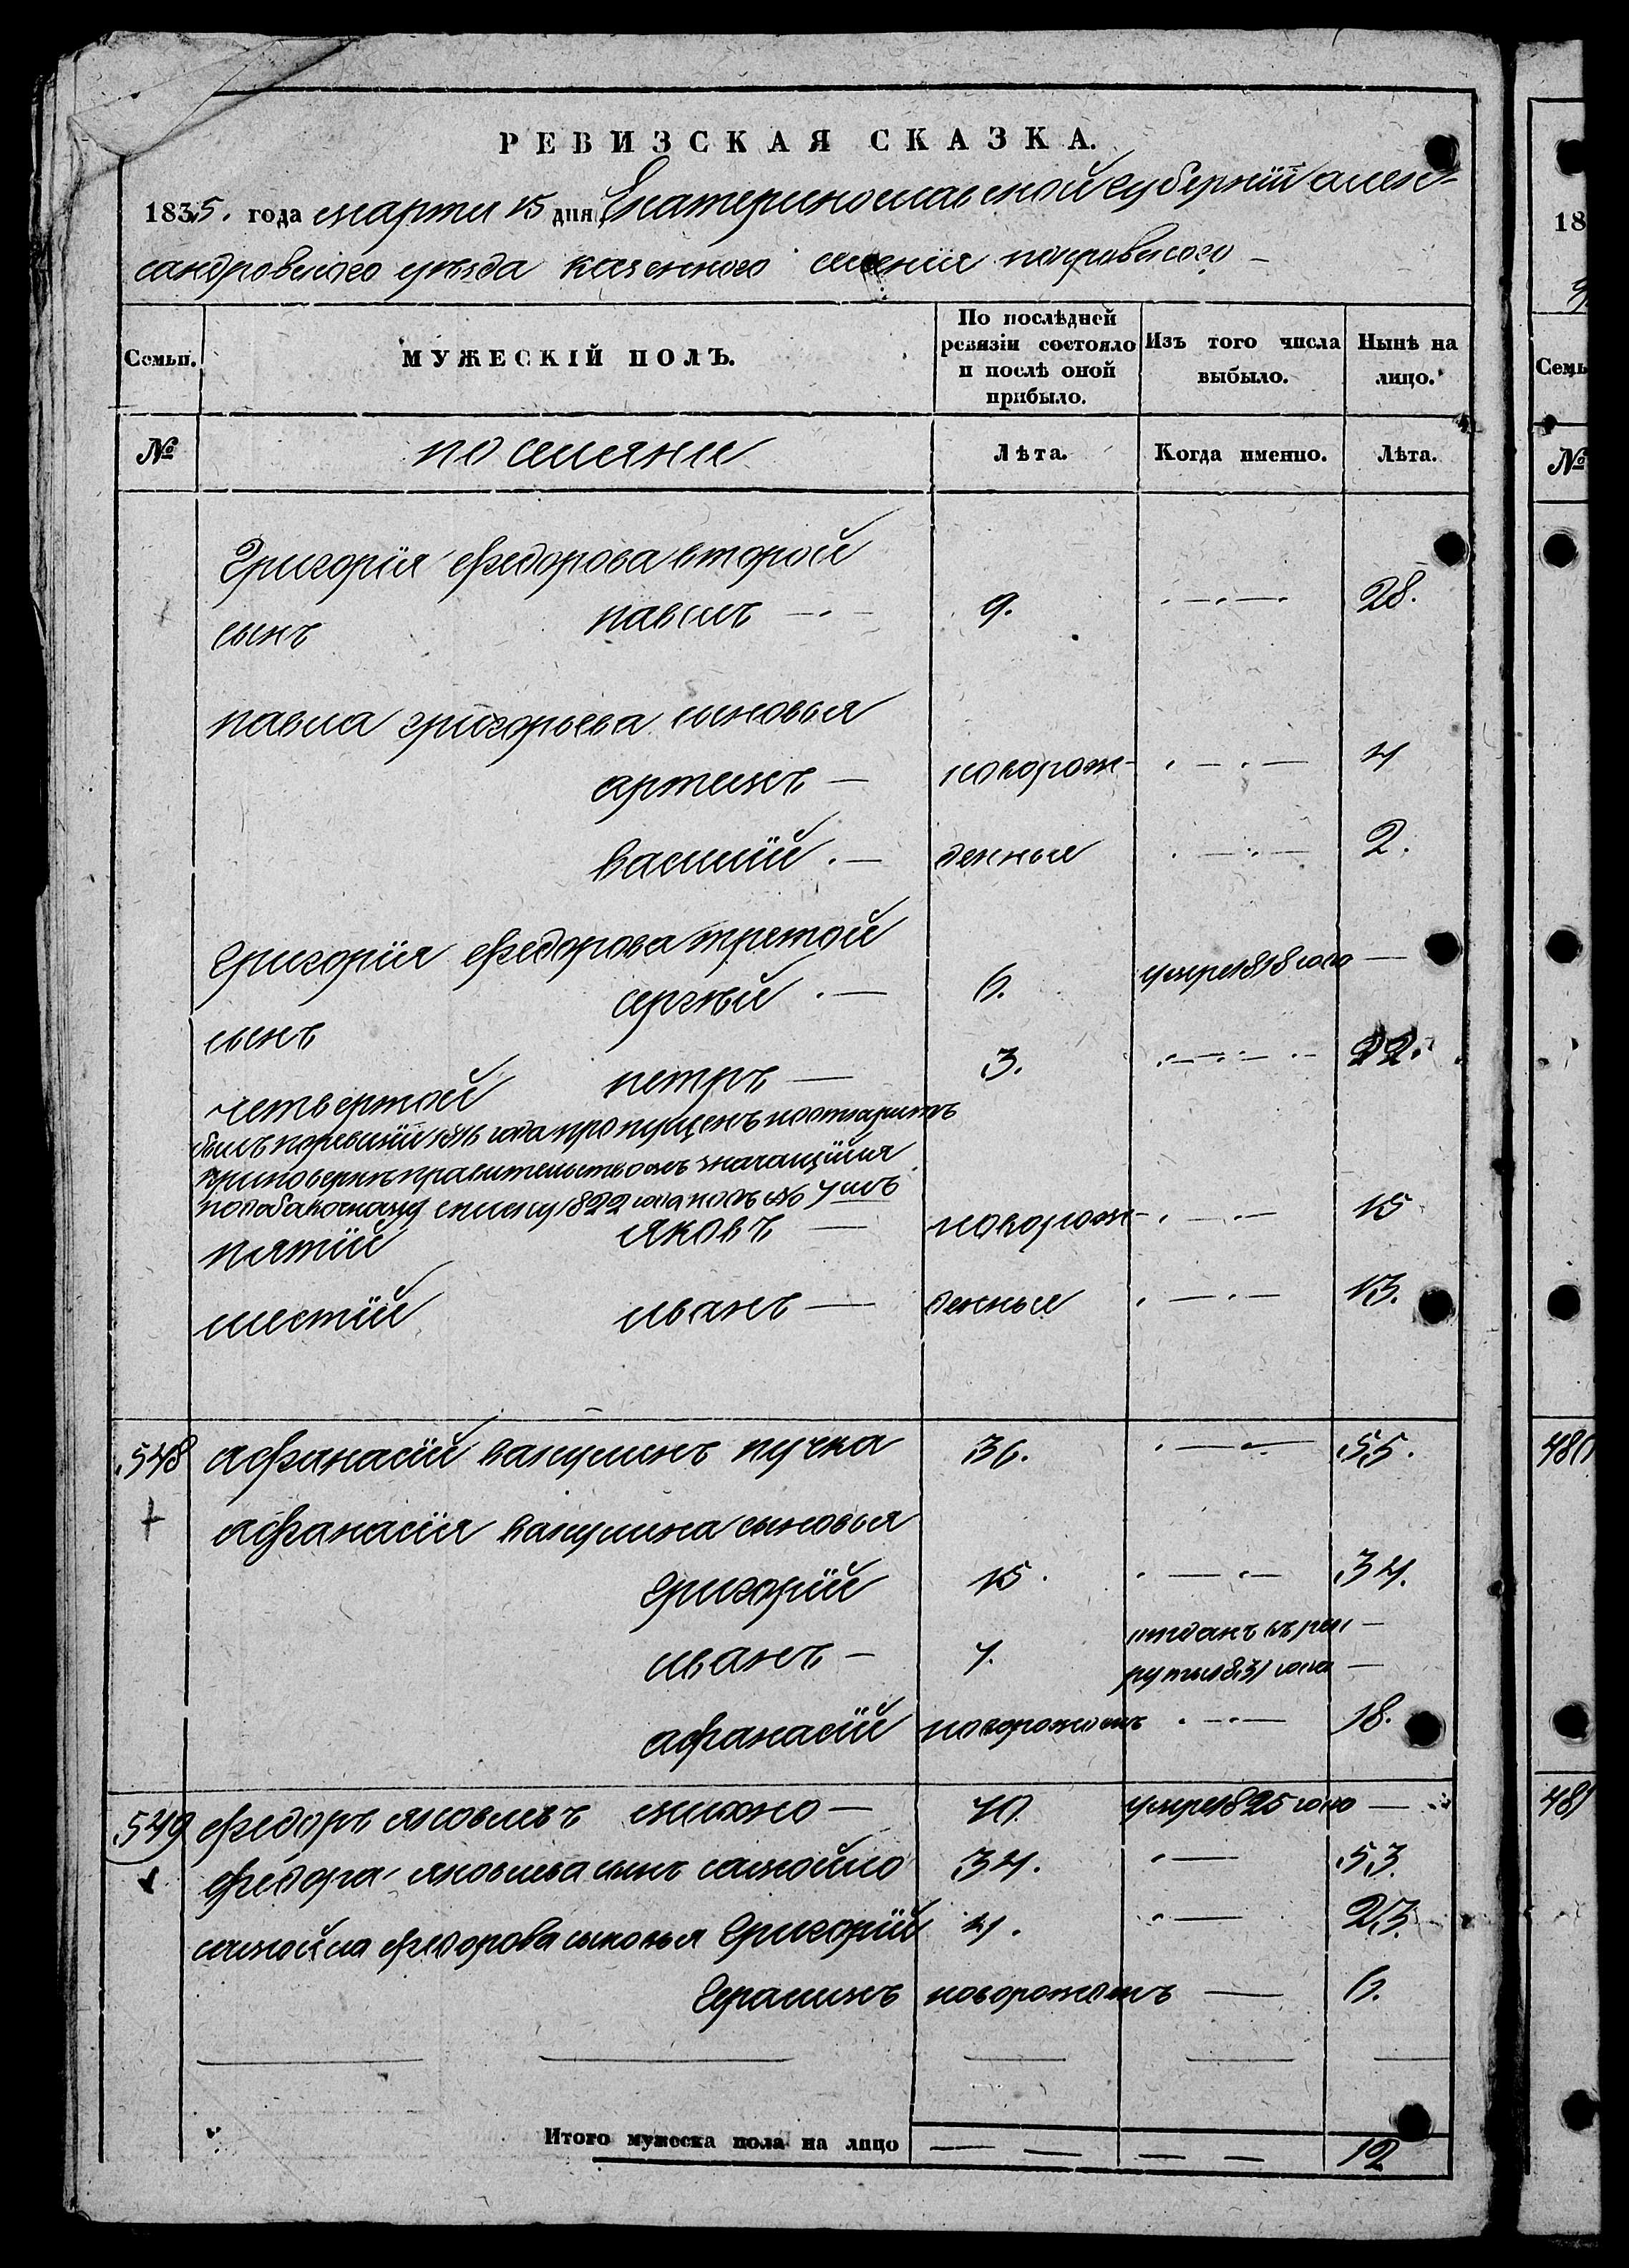 РЕВИЗСКАЯ СКАЗКА.
1835. года марта 15 дня Екатеринославской губерніи алек-
сандровского уезда казенного селенія покровского
Семьи. МУЖЕСКІЙ ПОЛЪ. По послѣдней ревизіи состояло и послѣ оной прибыло. Изъ того числа выбыло. Нынѣ на лицо.
№ поселяне Лѣта. Когда именно. Лѣта.
Григорія федорова второй
сынъ павелъ 9. 28.
павла григорьева сыновья
артемъ новорож- 4
василій денныя 2.
Григорія федорова третой
сынъ сергѣй 6. умре 1818 года
четвертой петръ 3. 22.
былъ поревизіи 1816 года пропущенъ
1822 года подъ № 4мъ
пятій яковъ новорож- 15
шестій иванъ денныя 13.
548 афанасій вакулинъ пучка 36. 55.
афанасія вакулина сыновья
Григорій 15. 34.
иванъ 7. отданъ въ рек
руты 1831 года
афанасій новорожденъ 18.
549 федоръ яковлевъ михно 70 умре 1825 года
федора яковлева сынъ самойло 34. 53.
самойла федорова сыновья Григорій 4. 23.
Герасимъ новорожденъ 6.
Итого мужеска пола на лицо 12
18
Семь
№
480
481